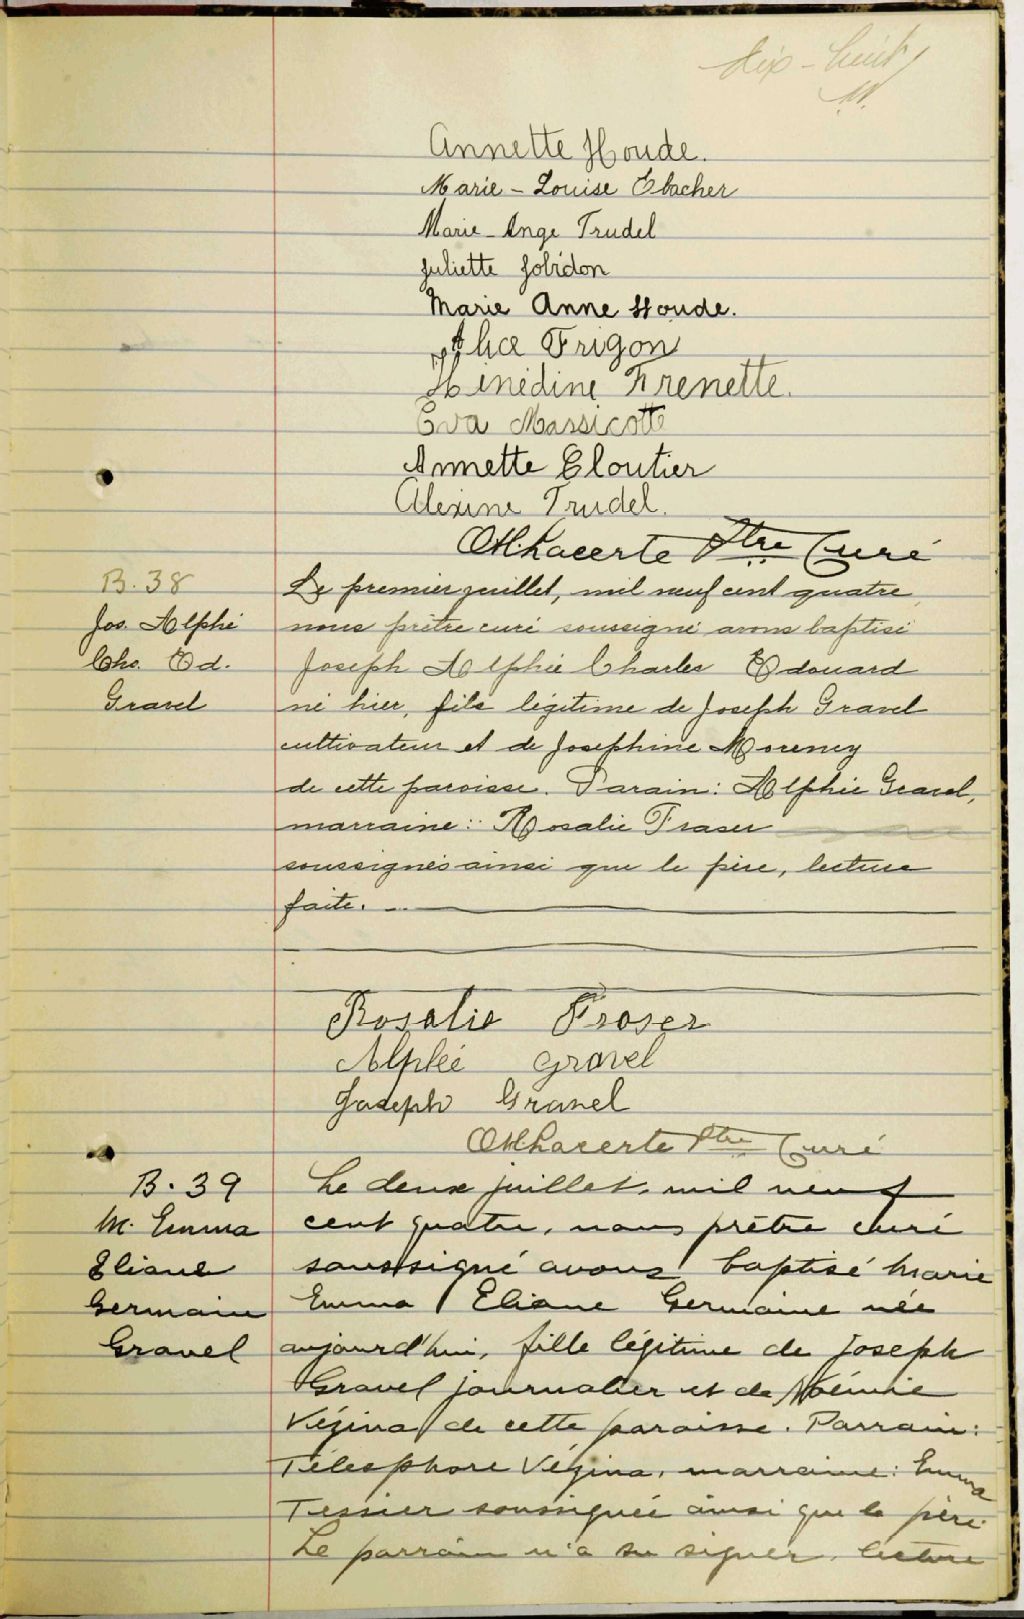 dix-huit
Annette Houde.
Marie-Louise Ebacher
Marie-Ange Trudel
Juliette Jobidon
Marie Anne Houde.
Alice Frigon
Hénédine Frenette.
Eva Massicotte
Annette Cloutier
Alexina Trudel.
Ptre Curé
B. 38
Jos. Alphé
Chs. Ed.
Gravel
Le premier juillet, mil neuf cent quatre,
nous prêtre curé soussigné avons baptisé
Joseph Alphée Charles Edouard
né hier, fils légitime de Joseph Gravel
cultivateur et de Josephine Morency
de cette paroisse. Parain: Alphée Gravel,
marraine: Rosalie Fraser
soussignés ainsi que le père, lecture
faite.
Rosalie Fraser
Alpheé Gravel
Joseph Gravel
Ptre Curé
B. 39
M. Emma
Eliane
Germain
Gravel
Le deux juillet, mil neuf
cent quatre, nous prêtre curé
soussigné avons baptisé Marie
Emma Eliane Germaine née
aujourd'hui, fille légitime de Joseph
Gravel journalier et de Noémie
Vézina de cette paroisse. Parrain:
Télesphore Vézina, marraine: Emma
Tessier soussignée ainsi que le père.
Le parrain n'a su signer, lecture